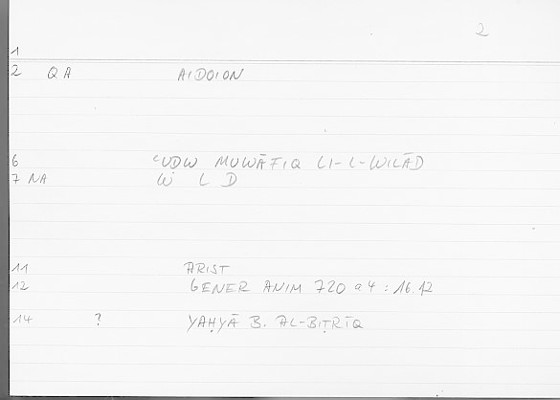 2
1
2 QA AIDOION
6 ʿUDW MUWĀFIQ LI-L-WILĀD
7 NA W L D
11 ARIST
12 GENER ANIM 720 a 4 : 16.12
14 ? YAḤYĀ B. AL-BIṬRĪQ